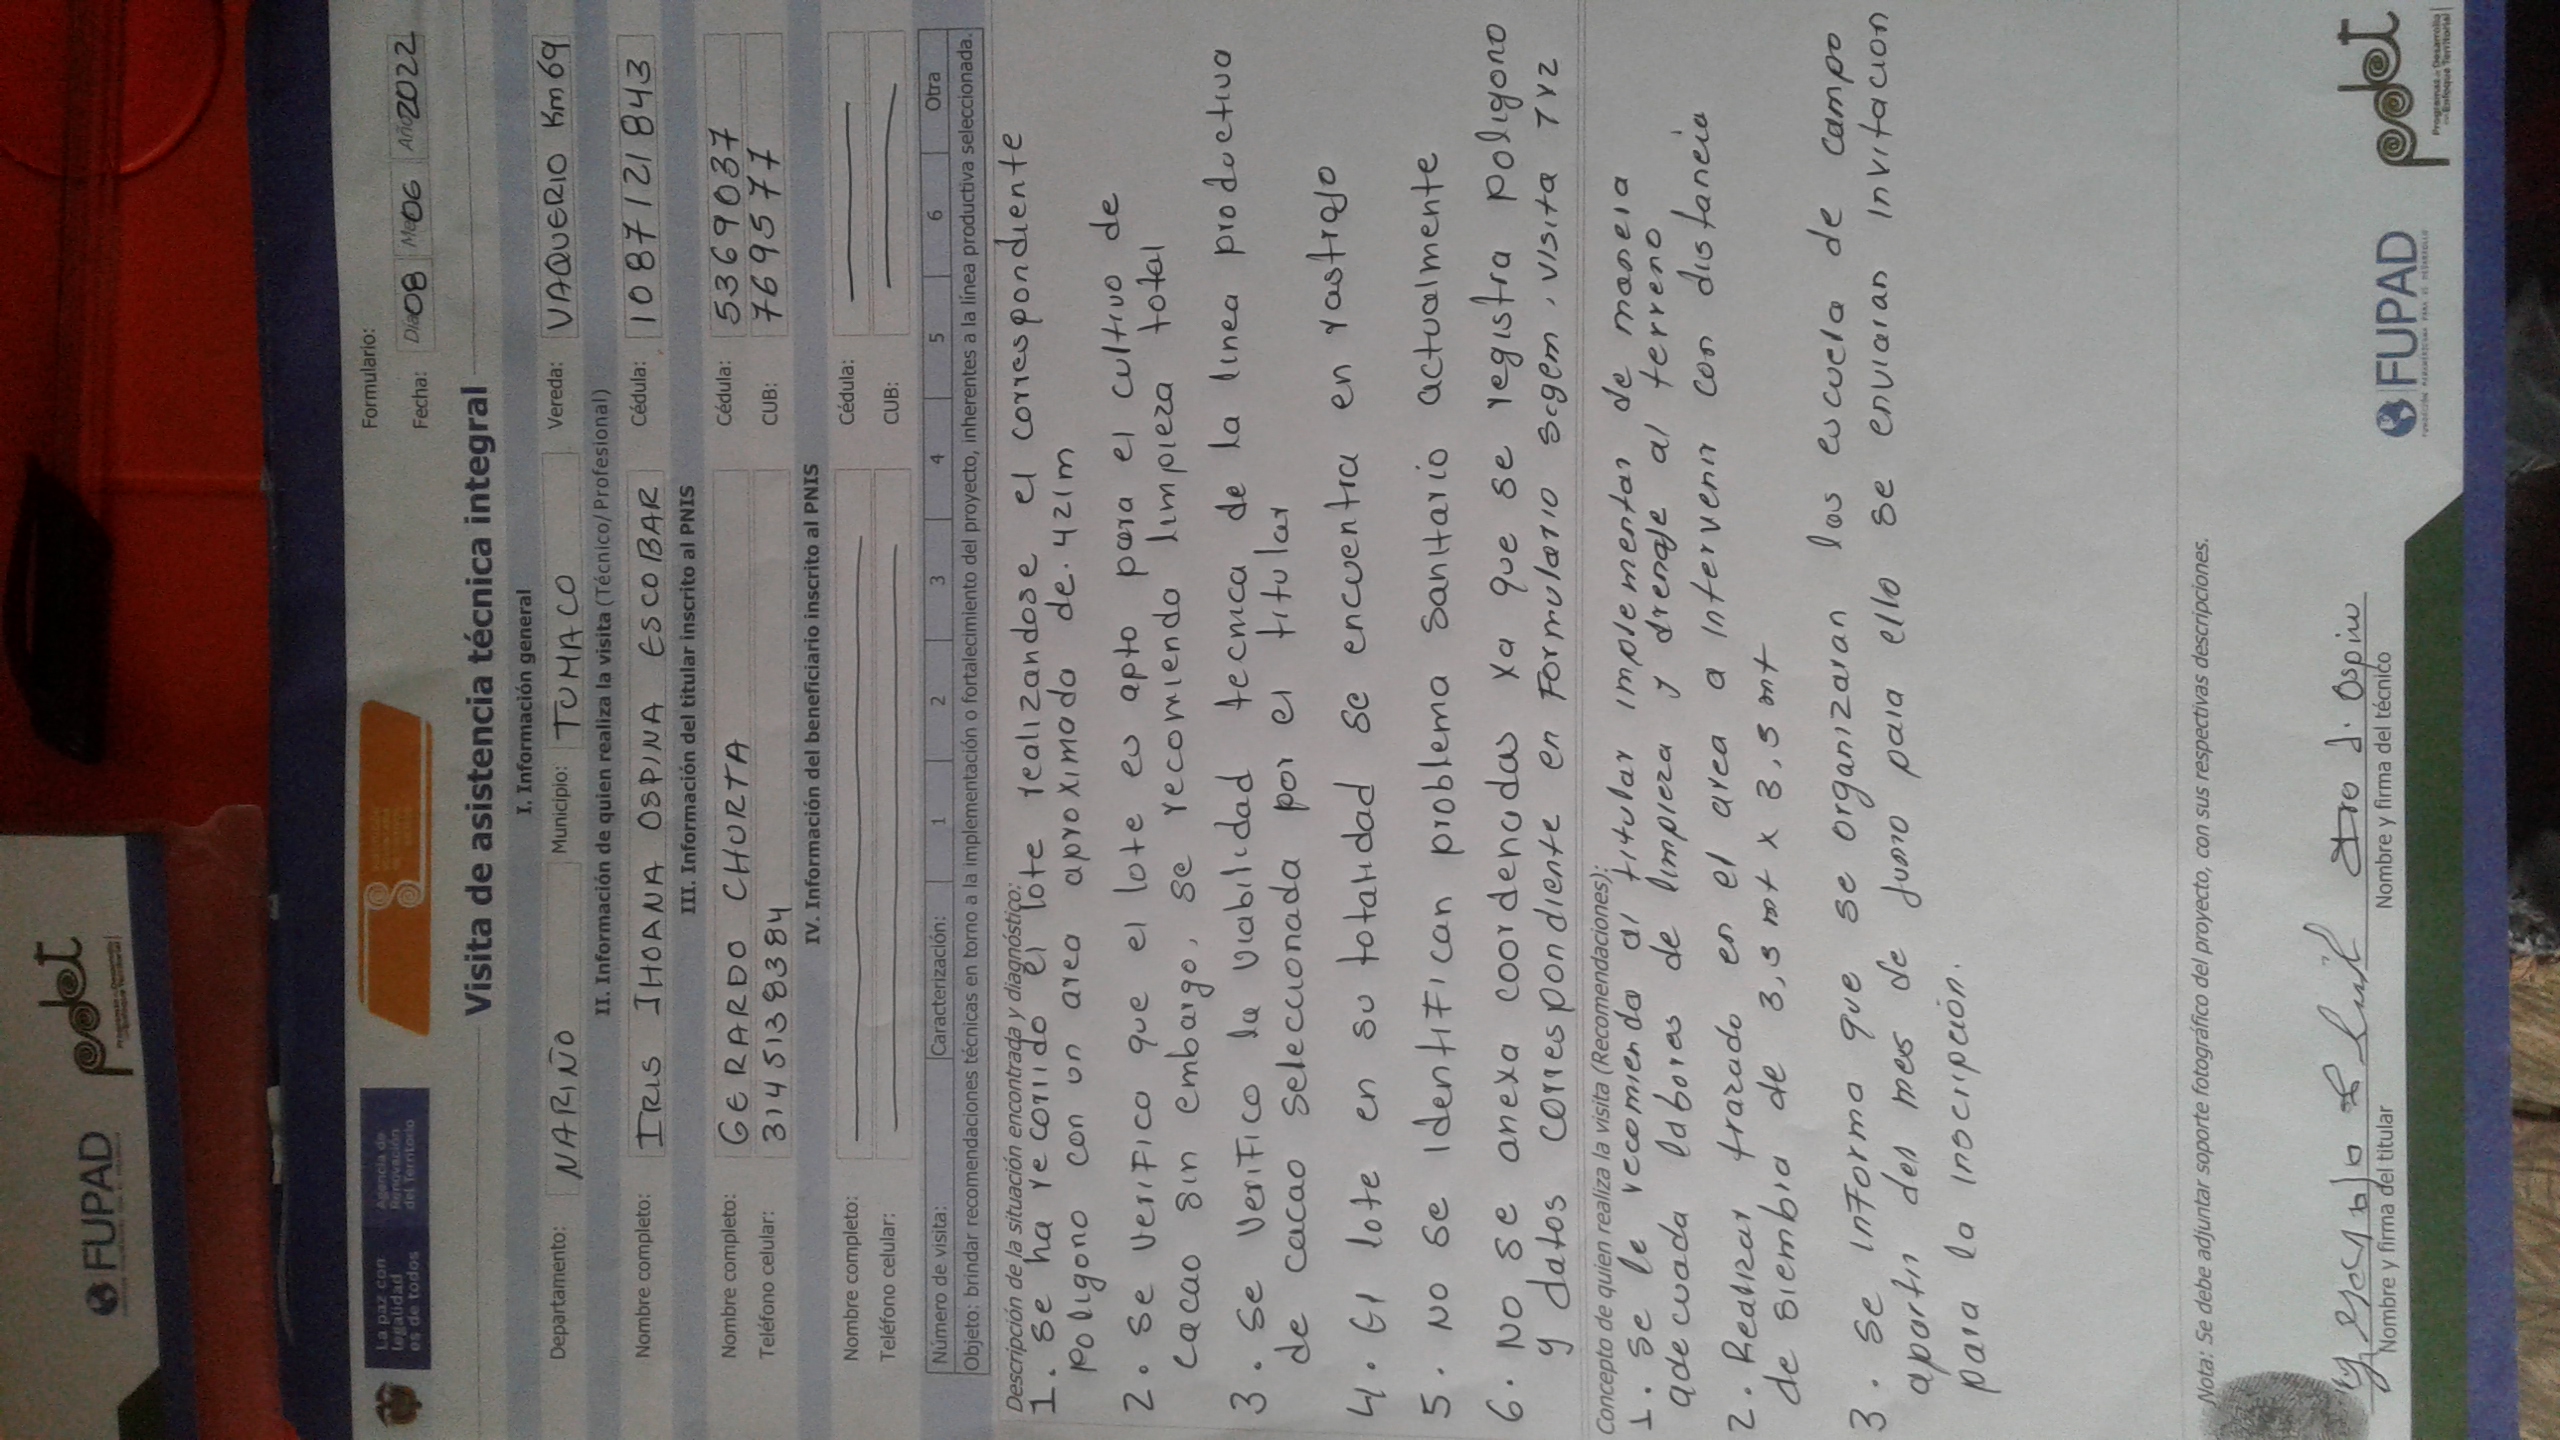 FUPAD
pdet
La paz con
legalidad
es de todos
Agencia de
Renovación
del Territorio
Formulario:
Fecha: Día 08 Mes 06 Año 2022
Visita de asistencia técnica integral
I. Información general
Departamento: NARIÑO Municipio: TUMACO Vereda: VAQUERIO Km 69
II. Información de quien realiza la visita (Técnico/Profesional)
Nombre completo: IRIS JHOANA OSPINA ESCOBAR Cédula: 1087121843
III. Información del titular inscrito al PNIS
Nombre completo: GERARDO CHURTA Cédula: 5369037
Teléfono celular: 3145138384 CUB: 769577
IV. Información del beneficiario inscrito al PNIS
Nombre completo: Cédula:
Teléfono celular: CUB:
Número de visita: Caracterización: 1 2 3 4 5 6 Otra
Objeto: brindar recomendaciones técnicas en torno a la implementación o fortalecimiento del proyecto, inherentes a la línea productiva seleccionada.
Descripción de la situación encontrada y diagnóstico:
1. se ha recorrido el lote realizandose el correspondiente
poligono con un area aproximada de. 421m
2. se verifico que el lote es apto para el cultivo de
cacao sin embargo, se recomiendo limpieza total
3. se verifico la viabilidad tecnica de la linea productiva
de cacao seleccionada por el titular
4. El lote en su totalidad se encuentra en rastrojo
5. No se identifican problema sanitario actualmente
6. No se anexa coordenadas xa que se registra poligono
y datos correspondiente en formulario segem, visita 1y2
Concepto de quien realiza la visita (Recomendaciones):
1. se le recomienda al titular implementar de manera
adecuada labores de limpieza y drenaje al terreno
2. Realizar trazado en el area a intervenir con distancia
de siembra de 3,5 mt x 3,5 mt
3. se informo que se organizaran las escuela de campo
apartir del mes de junio para ello se enviaran invitacion
para la inscripción.
Nota: Se debe adjuntar soporte fotográfico del proyecto, con sus respectivas descripciones.
Nombre y firma del titular
Nombre y firma del técnico
FUPAD
FUNDACIÓN PANAMERICANA PARA EL DESARROLLO
pdet
Programas de Desarrollo
con Enfoque Territorial